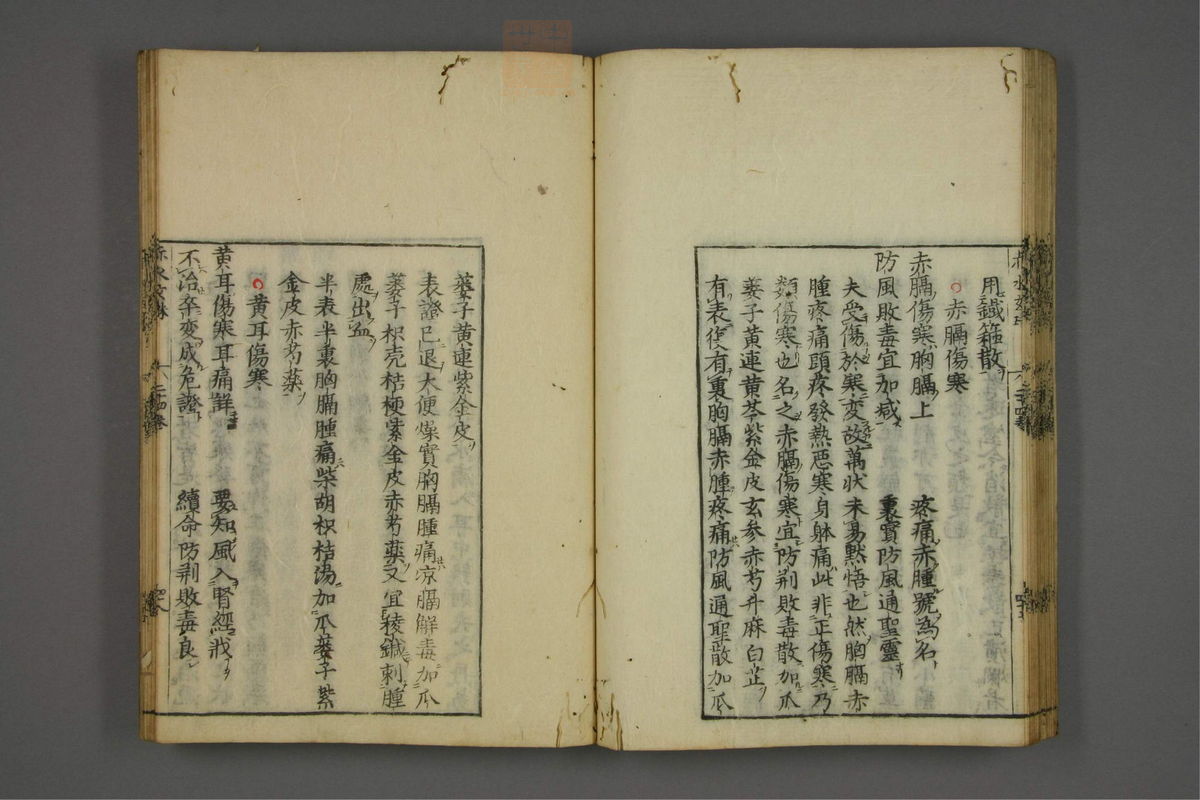 用鐵箍散
赤膈傷寒
赤膈傷寒胸膈上　疼痛赤腫號為名
防風敗毒宜加減　裏實防風通聖靈
夫受傷於寒変故萬状未易黙悟也然胸膈赤
腫疼痛頭疼發熱悪寒身躰痛此非正傷寒乃
類傷寒也名之赤膈傷寒宜防荆敗毒散加瓜
蔞子黄連黄芩紫金皮玄参赤芍升麻白芷
有表復有裏胸膈赤腫疼痛防風通聖散加瓜
蔞子黄連紫金皮
表證已退大便燥實胸膈腫痛凉膈解毒加瓜
蔞子枳壳桔梗紫金皮赤芍藥又宜稜鍼刺腫
處出血
半表半裏胸膈腫痛柴胡枳桔湯加瓜蔞子紫
金皮赤芍藥
黄耳傷寒
黄耳傷寒耳痛詳　要知風入腎經戕
不治卒変成危證　續命防荆敗毒良